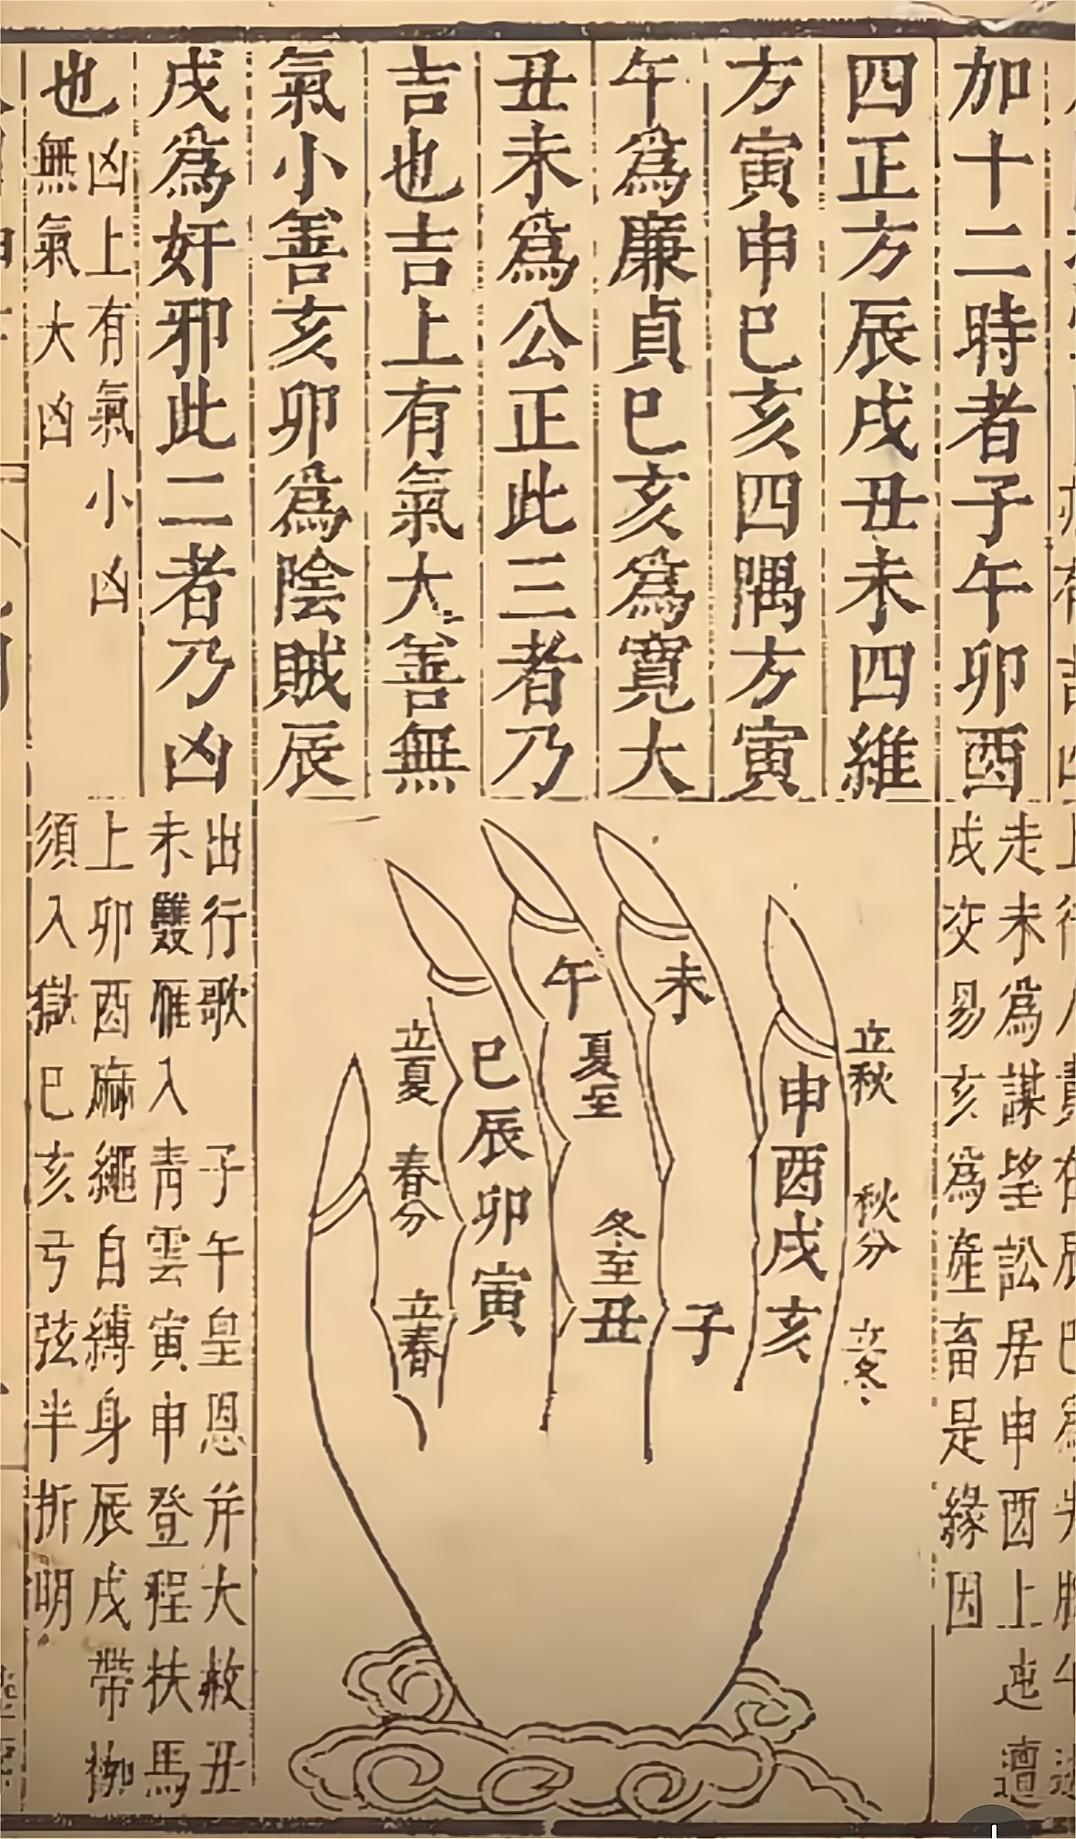 加十二時者子午卯酉
四正方辰戌丑未四維
方寅申巳亥四隅方寅
午爲廉貞巳亥爲寬大
丑未爲公正此三者乃
吉也吉上有氣大善無
氣小善亥卯爲陰賊辰
戌爲奸邪此二者乃凶
也
凶上有氣小凶
無氣大凶
走未爲謀望訟居申酉上迍邅
戌交易亥爲産畜是緣因
午
未
巳
辰
卯
寅
丑
子
申
酉
戌
亥
立夏
春分
立春
夏至
冬至
立秋
秋分
立冬
出行歌 子午皇恩并大赦丑
未雙雁入青雲寅申登程扶馬
上卯酉麻繩自縛身辰戌帶枷
須入獄巳亥弓弦半折明